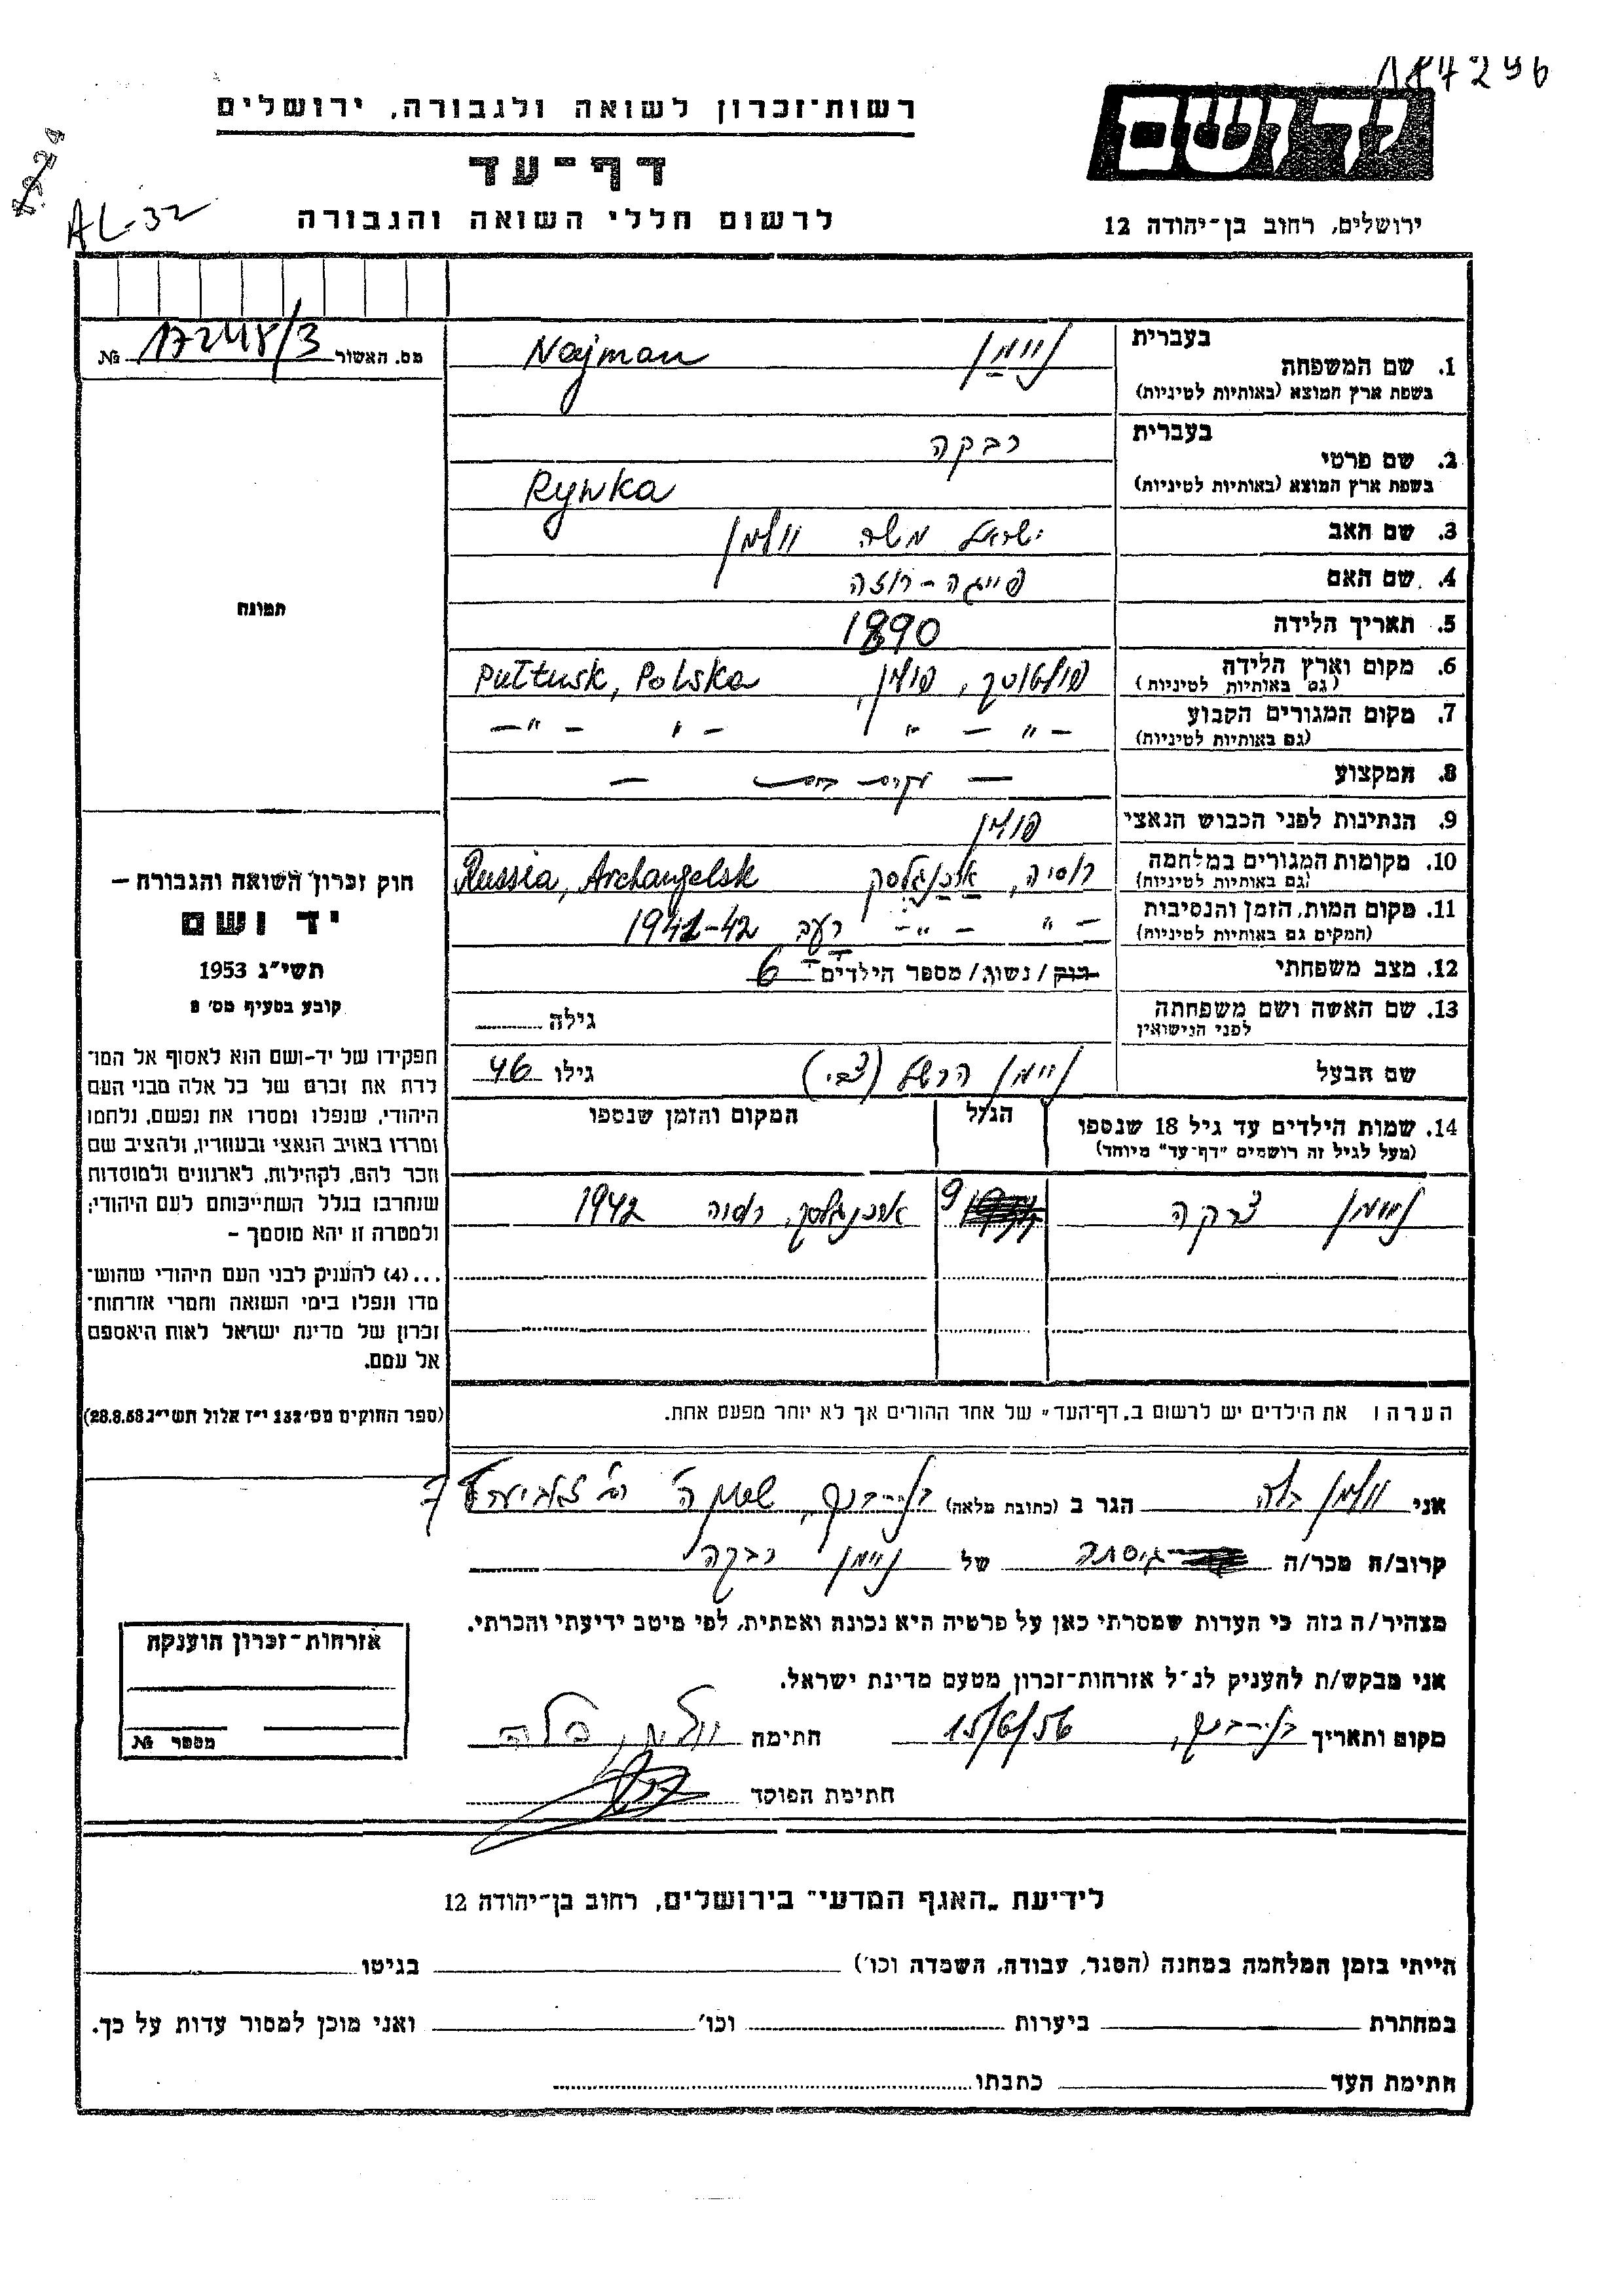 184296
רשות-זכרון לשואה ולגבורה, ירושלים
יד ושם
דף-עד
AL-32
לרשום חללי השואה והגבורה
ירושלים, רחוב בן-יהודה 12
מס. האשור 17248/3 №
בעברית
1. שם המשפחה ניימן Najman
בשפת ארץ המוצא (באותיות לטיניות)
בעברית
2. שם פרטי רבקה
בשפת ארץ המוצא (באותיות לטיניות) Rywka
3. שם האב ישראל משה וולמן
4. שם האם פייגה-רוזה
תמונה
5. תאריך הלידה 1890
6. מקום וארץ הלידה פולטוסק, פולין, Pułtusk, Polska
(גם באותיות לטיניות)
7. מקום המגורים הקבוע — " — " — " — " —
(גם באותיות לטיניות)
8. המקצוע — עקרת בית —
9. הנתינות לפני הכבוש הנאצי פולין
10. מקומות המגורים במלחמה רוסיה, ארכנגלסק Russia, Archangelsk
(גם באותיות לטיניות)
11. מקום המות, הזמן והנסיבות — " — " — רעב 1941-42
(המקום גם באותיות לטיניות)
12. מצב משפחתי רווק / נשוי / מספר הילדים 6
13. שם האשה ושם משפחתה גילה
לפני הנישואין
שם הבעל ניימן הרשל (צבי) גילו 46
14. שמות הילדים עד גיל 18 שנספו הגיל המקום והזמן שנספו
(מעל לגיל זה רושמים "דף-עד" מיוחד)
ניימן צרקה 9 ארכנגלסק, רוסיה 1942
חוק זכרון השואה והגבורה —
יד ושם
תשי"ג 1953
קובע בסעיף מס' 2
תפקידו של יד-ושם הוא לאסוף אל המו־
לדת את זכרם של כל אלה מבני העם
היהודי, שנפלו ומסרו את נפשם, נלחמו
ומרדו באויב הנאצי ובעוזריו, ולהציב שם
וזכר להם, לקהילות, לארגונים ולמוסדות
שנחרבו בגלל השתייכותם לעם היהודי;
ולמטרה זו יהא מוסמך –
...(4) להעניק לבני העם היהודי שהוש־
מדו ונפלו בימי השואה והמרי אזרחות־
זכרון של מדינת ישראל לאות היאספם
אל עמם.
(ספר החוקים מס' 132 י"ז אלול תשי"ג 28.8.53)
הערה: את הילדים יש לרשום ב"דף-העד" של אחד ההורים אך לא יותר מפעם אחת.
אני וולמן בלה הגר ב (כתובת מלאה)
קרוב/ה מכר/ה גיסתה של ניימן רבקה
מצהיר/ה בזה כי העדות שמסרתי כאן על פרטיה היא נכונה ואמתית, לפי מיטב ידיעתי והכרתי.
אני מבקש/ת להעניק לנ"ל אזרחות-זכרון מטעם מדינת ישראל.
מקום ותאריך 15/6/56 חתימה וולמן בלה
חתימת הפוקד
אזרחות-זכרון הוענקה
מספר №
לידיעת "האגף המדעי" בירושלים, רחוב בן-יהודה 12
הייתי בזמן המלחמה במחנה (הסגר, עבודה, השמדה וכו') בגיטו
במחתרת ביערות וכו' ואני מוכן למסור עדות על כך.
חתימת העד כתבתו